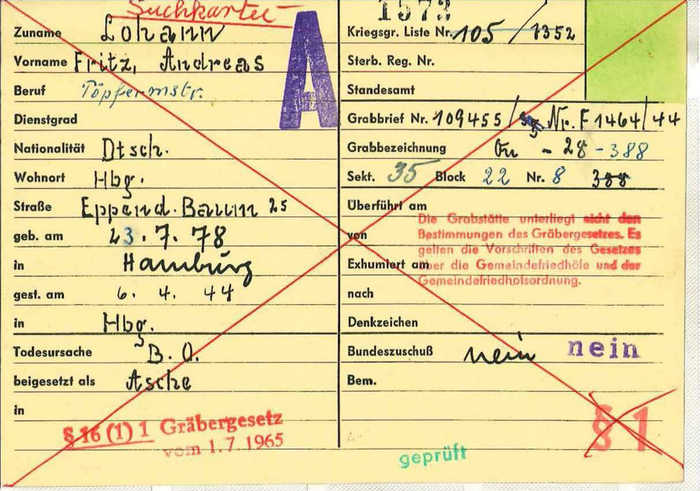 Suchkarte
1573
Zuname Lohann
Vorname Fritz, Andreas
Beruf Töpfermstr.
Dienstgrad
A
Nationalität Dtsch.
Wohnort Hbg.
Straße Eppend. Baum 25
geb. am 23.7.78
in Hamburg
gest. am 6.4.44
in Hbg.
Todesursache B.O.
beigesetzt als Asche
in
§ 16 (1) 1 Gräbergesetz
vom 1.7.1965
Kriegsgr. Liste Nr. 105/1352
Sterb. Reg. Nr.
Standesamt
Grabbrief Nr. 109455/ Nr. F 1464/44
Grabbezeichnung - 28 - 388
Sekt. 35 Block 22 Nr. 8 388
Überführt am
Die Grabstätte unterliegt nicht den
von
Bestimmungen des Gräbergesetzes. Es
gelten die Vorschriften des Gesetzes
Exhumiert am
über die Gemeindefriedhöfe und der
nach
Gemeindefriedhofsordnung.
Denkzeichen
Bundeszuschuß nein nein
Bem.
§ 1
geprüft